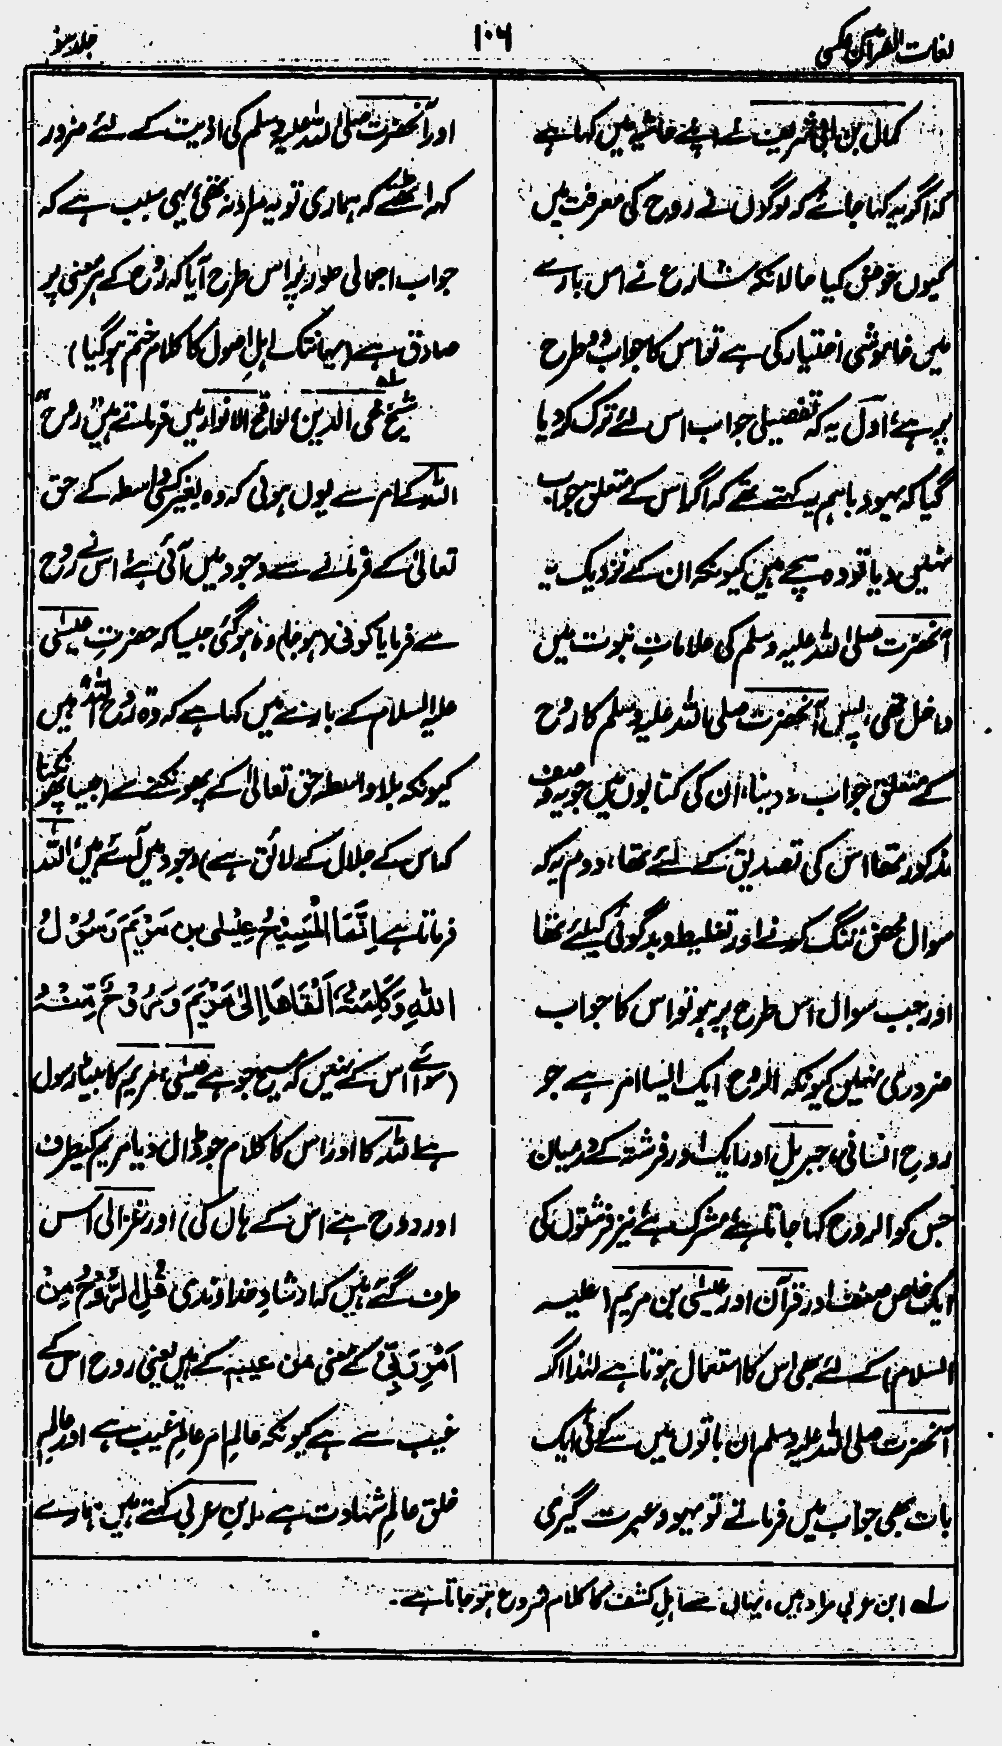 لغات القرآن عکسی
۱۰۶
جلد سوم
کمال بن ابی شریف نے اپنے حاشیہ میں کہا ہے
کہ اگر یہ کہا جائے کہ لوگوں نے روح کی معرفت میں
کیوں غوض کیا حالانکہ شارع نے اس بارے
میں خاموشی اختیار کی ہے تو اس کا جواب دو طرح
پر ہے، اول یہ کہ تفصیلی جواب اس لئے ترک کر دیا
گیا کہ یہود باہم یہ کہتے تھے کہ اگر اس کے متعلق جواب
نہیں دیا تو وہ سچے ہیں کیونکہ ان کے نزدیک یہ
آنحضرت صلی اللہ علیہ وسلم کی علاماتِ نبوت میں
داخل تھی، پس آنحضرت صلی اللہ علیہ وسلم کا روح
کے متعلق جواب نہ دینا، ان کی کتابوں میں جو یہ وصف
مذکور تھا اس کی تصدیق کے لئے تھا، دوم یہ کہ
سوال محض تنگ کرنے اور تغلیط و بدگوئی کیلئے تھا
اور جب سوال اس طرح پر ہو تو اس کا جواب
ضروری نہیں کیونکہ الروح ایک ایسا امر ہے جو
روحِ انسانی، جبریل اور ایک اور فرشتہ کے درمیان
جس کو الروح کہا جاتا ہے مشترک ہے نیز فرشتوں کی
ایک خاص صنف اور قرآن اور عیسٰی بن مریم (علیہ
السلام) کے لئے بھی اس کا استعمال ہوتا ہے لہٰذا اگر
آنحضرت صلی اللہ علیہ وسلم ان باتوں میں سے کوئی ایک
بات بھی جواب میں فرماتے تو یہود عبرت گیری
اور آنحضرت صلی اللہ علیہ وسلم کی اذیت کے لئے ضرور
کہہ اٹھتے کہ ہماری تو یہ مراد نہ تھی، یہی سبب ہے کہ
جواب اجمالی طور پر اس طرح آیا کہ روح کے ہر معنی پر
صادق ہے (یہانتک اہلِ اصول کا کلام ختم ہو گیا)
شیخ محی الدین لواقح الانوار میں فرماتے ہیں "روح"
اللہ کے امر سے یوں ہوئی کہ وہ بغیر کسی واسطہ کے حق
تعالیٰ کے فرمانے سے وجود میں آئی ہے، اس نے روح
سے فرمایا کونی (ہو جا) وہ ہو گئی جیسا کہ حضرتِ عیسٰی
علیہ السلام کے بارے میں کہا ہے کہ وہ روح اللہ ہیں
کیونکہ بلا واسطہ حق تعالیٰ کے پھونکنے سے (جیسا پھونکنا
کہ اس کے جلال کے لائق ہے) وجود میں آئے ہیں، اللہ
فرماتا ہے اِنَّمَا الْمَسِیْحُ عِیْسٰی بن مَرْیَمَ رَسُوْلُ
اللّٰہِ وَکَلِمَتُہٗ اَلْقَاھَا اِلٰی مَرْیَمَ وَرُوْحٌ مِّنْہُ
(سوائے اس کے نہیں کہ مسیح جو ہے عیسٰی، مریم کا بیٹا رسول
ہے اللہ کا اور اس کا کلام جو ڈال دیا مریم کیطرف
اور روح ہے اس کے ہاں کی) اور غزالی اس
طرف گئے ہیں کہ ارشادِ خداوندی قُلِ الرُّوْحُ مِنْ
اَمْرِ رَبِّیْ کے معنی من غیبہ کے ہیں یعنی روح اس کے
غیب سے ہے کیونکہ عالمِ امر عالمِ غیب ہے اور عالمِ
خلق عالمِ شہادت ہے، ابنِ عربی کہتے ہیں: ہمارے
لہ ابن عربی مراد ہیں، یہاں سے اہلِ کشف کا کلام شروع ہو جاتا ہے۔